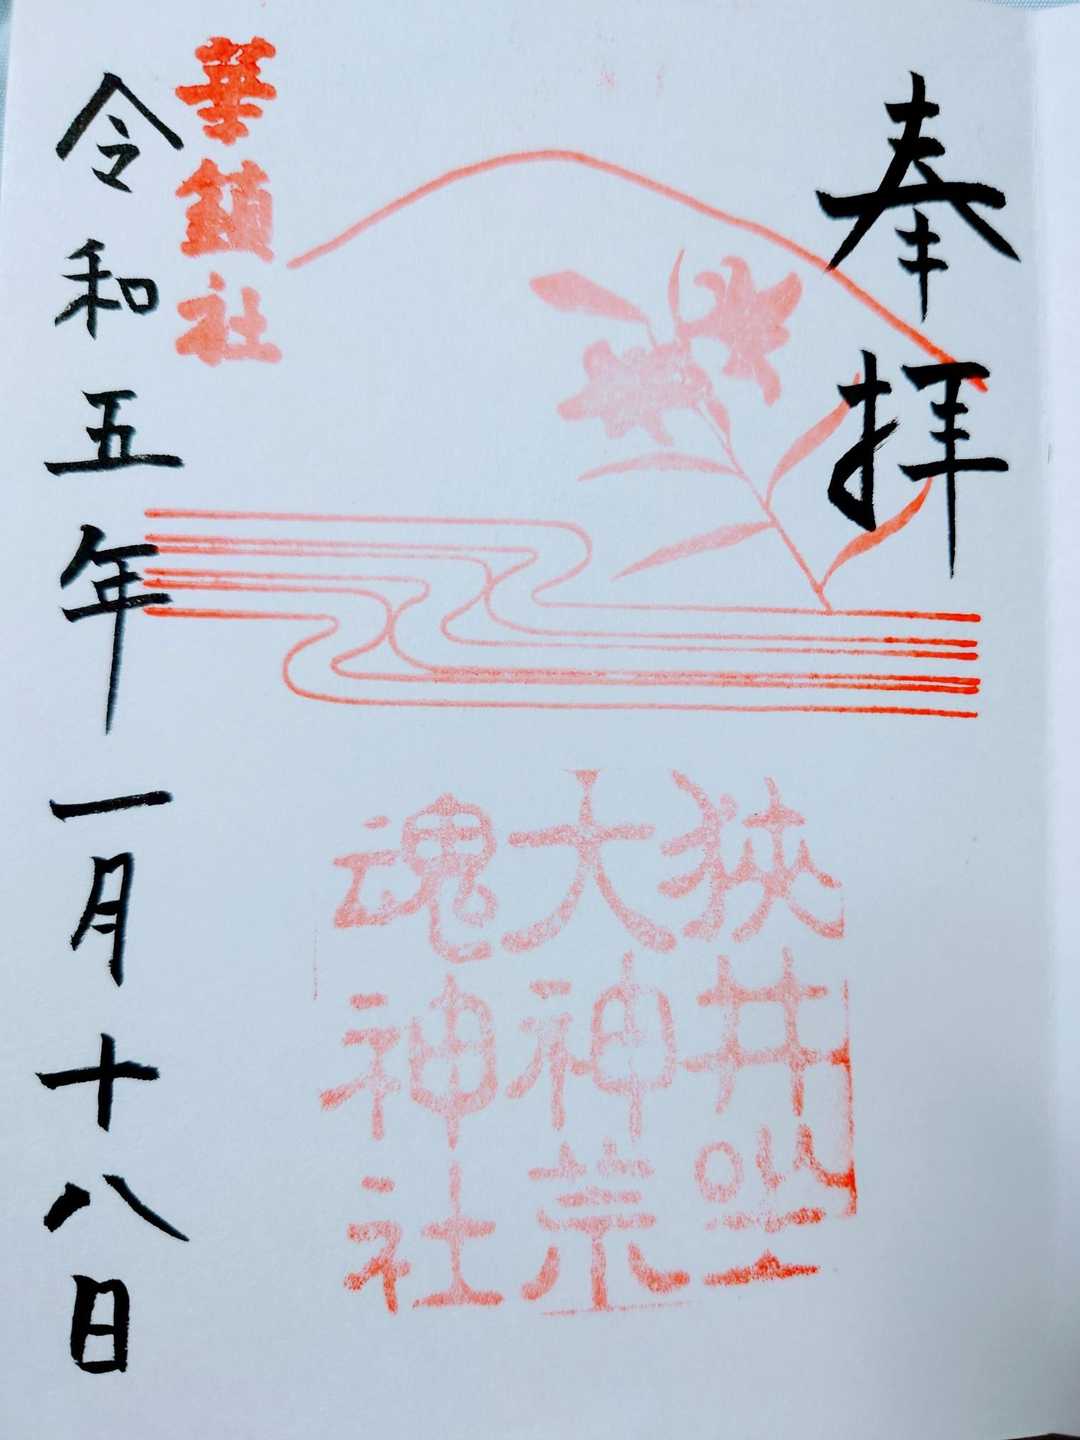 奉拝
狭井坐
大神荒
魂神社
華鎮社
令和五年一月十八日